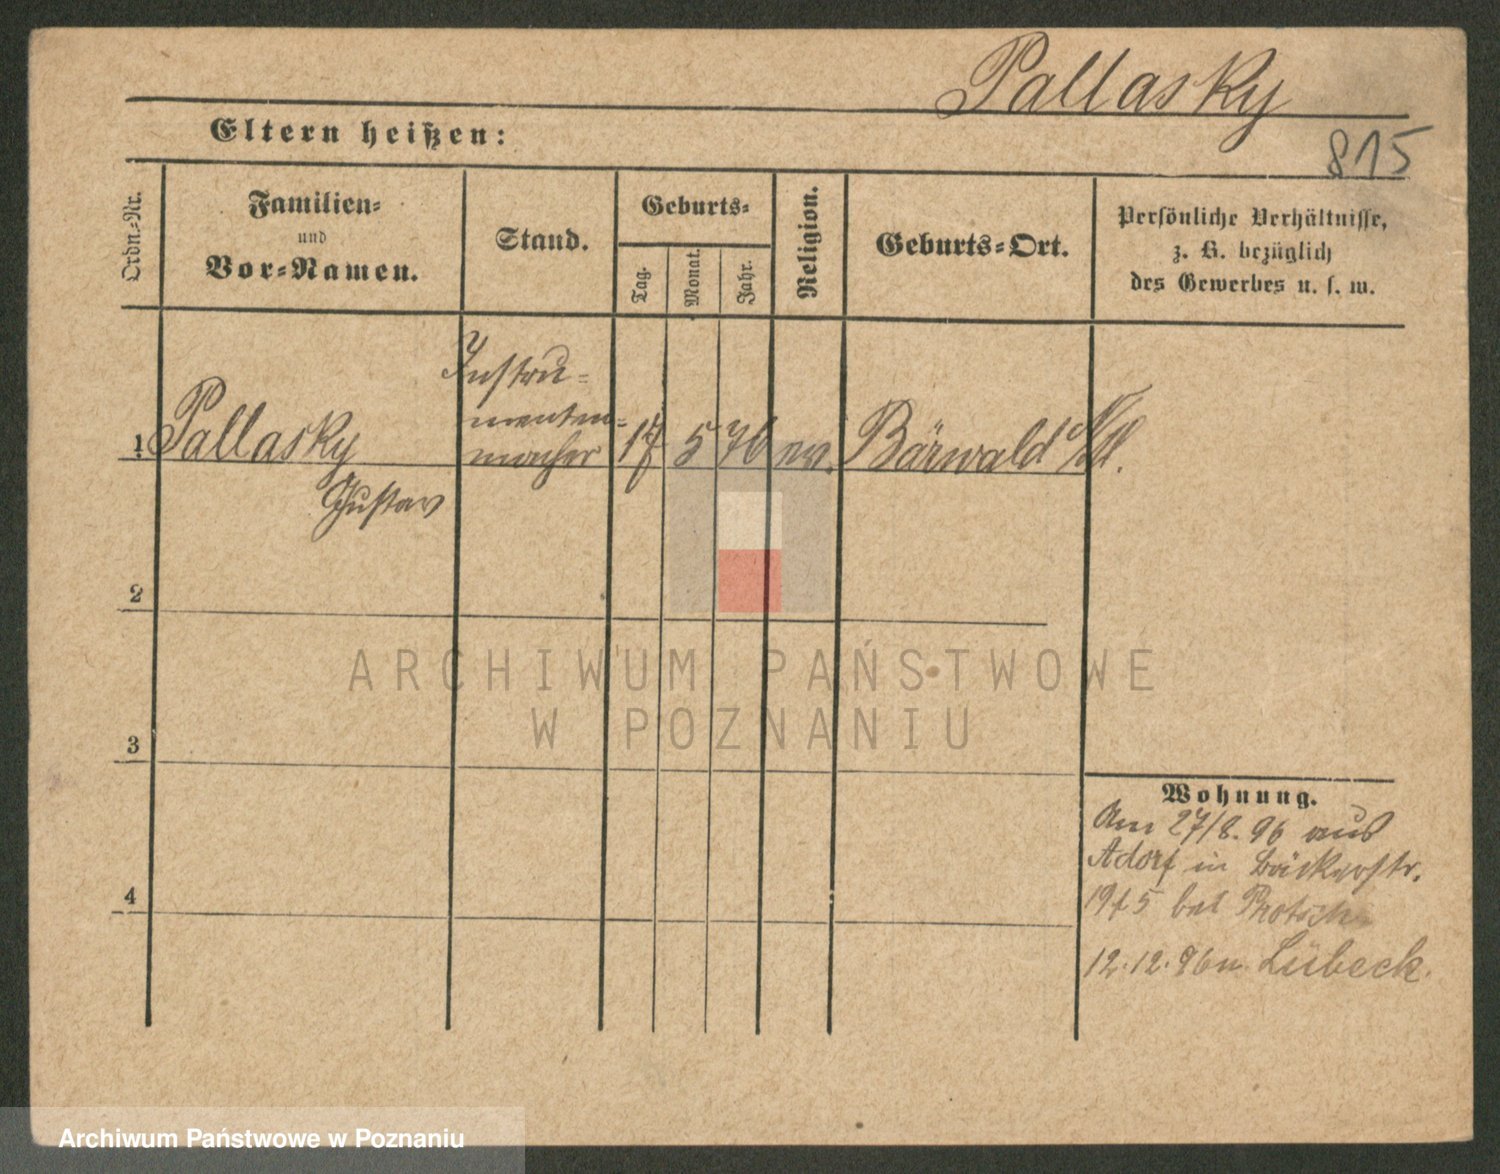 Pallasky
Eltern heißen:
815
Ordn.-Nr.
Familien-
und
Vor-Namen.
Stand.
Geburts-
Tag.
Monat.
Jahr.
Religion.
Geburts-Ort.
Persönliche Verhältnisse,
z. B. bezüglich
des Gewerbes u. s. w.
1
Pallasky
Gustav
Instru-
menten-
macher
17
5
76
ev.
Bärwald
2
ARCHIWUM PAŃSTWOWE
W POZNANIU
3
4
Wohnung.
Am 27/8. 96 aus
Adorf in Bäckerstr.
bei
12.12.96 n Lübeck.
Archiwum Państwowe w Poznaniu